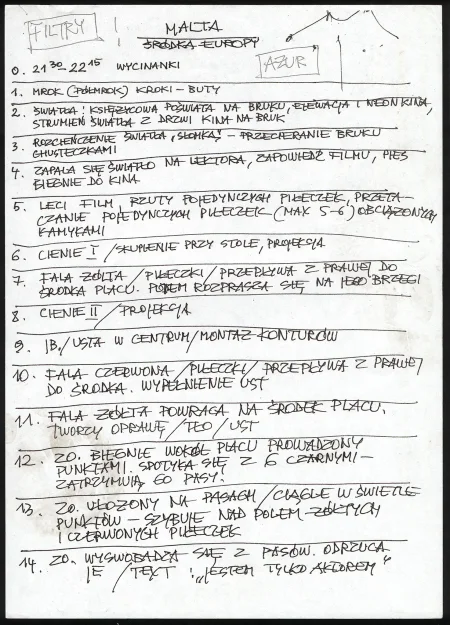 FILTRY
MALTA
ŚRODKA EUROPY
AZUR
0. 21³⁰-22¹⁵ WYCINANKI
1. MROK (PÓŁMROK) KROKI - BUTY
2. ŚWIATŁA: KSIĘŻYCOWA POŚWIATA NA BRUKU, ELEWACJA I NEON KINA,
STRUMIEŃ ŚWIATŁA Z DRZWI KINA NA BRUK
3. ROZCIEŃCZENIE ŚWIATŁA „SŁOMKĄ" - PRZECIERANIE BRUKU
CHUSTECZKAMI
4. ZAPALA SIĘ ŚWIATŁO NA LEKTORA, ZAPOWIEDŹ FILMU, PIES
BIEGNIE DO KINA
5. LECI FILM, RZUTY POJEDYNCZYCH PIŁECZEK, PRZETA-
CZANIE POJEDYNCZYCH PIŁECZEK (MAX 5-6) OBCIĄŻONYCH
KAMYKAMI
6. CIENIE I / SKUPIENIE PRZY STOLE, PROJEKCJA
7. FALA ŻÓŁTA / PIŁECZKI / PRZEPŁYWA Z PRAWEJ DO
ŚRODKA PLACU. POTEM ROZPRASZA SIĘ NA JEGO BRZEGI
8. CIENIE II / PROJEKCJA
9. IB. / USTA W CENTRUM / MONTAŻ KONTURÓW
10. FALA CZERWONA / PIŁECZKI / PRZEPŁYWA Z PRAWEJ
DO ŚRODKA. WYPEŁNIENIE UST
11. FALA ŻÓŁTA POWRACA NA ŚRODEK PLACU.
TWORZY OPRAWĘ / TŁO / UST
12. ZO. BIEGNIE WOKÓŁ PLACU PROWADZONY
PUNKTAMI. SPOTYKA SIĘ Z 6 CZARNYMI -
ZATRZYMUJĄ GO PASY!
13. ZO. UŁOŻONY NA PASACH / CIĄGLE W ŚWIETLE
PUNKTÓW - SZYBUJE NAD POLEM ŻÓŁTYCH
I CZERWONYCH PIŁECZEK
14. ZO. WYSWOBADZA SIĘ Z PASÓW. ODRZUCA
JE / TEKST: „JESTEM TYLKO AKTOREM"